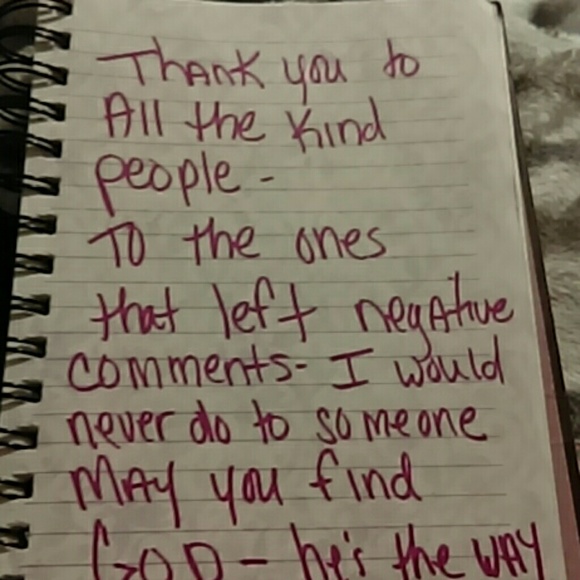 Thank you to
All the Kind
people -
To the ones
that left negative
comments- I would
never do to someone
MAY you find
GOD - he's the WAY